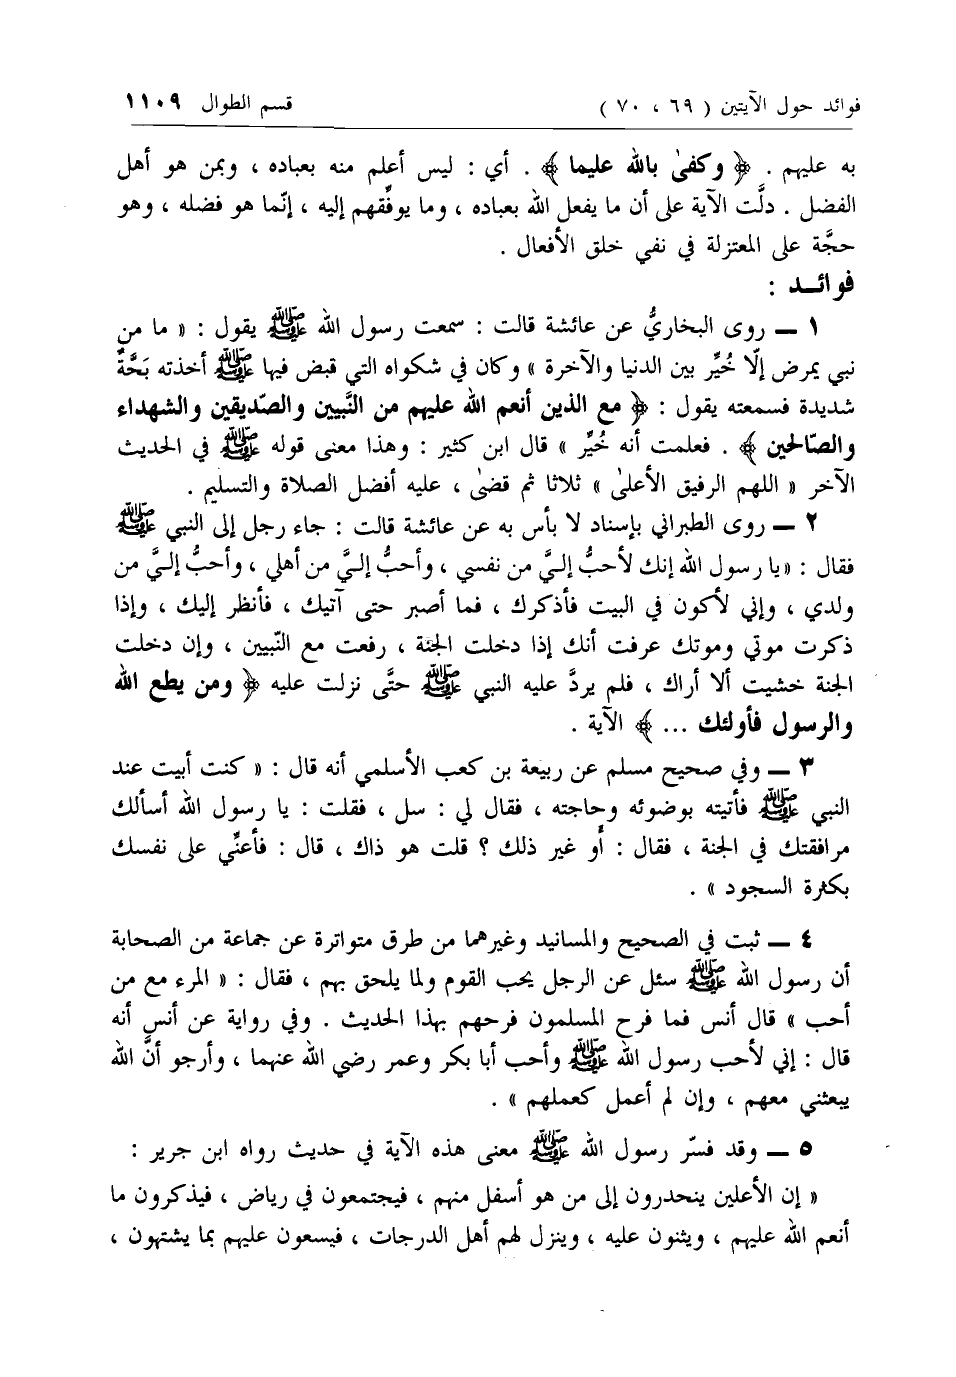 فوائد حول الآيتين ( ٦٩ ، ٧٠ ) قسم الطوال ١١٠٩
به عليهم . ﴿ وكفىٰ بالله عليما ﴾ . أي : ليس أعلم منه بعباده ، وبمن هو أهل
الفضل . دلَّت الآية على أن ما يفعل الله بعباده ، وما يوفِّقهم إليه ، إنّما هو فضله ، وهو
حجَّة على المعتزلة في نفي خلق الأفعال .
فوائـد :
١ ــ روى البخاريُّ عن عائشة قالت : سمعت رسول الله ﷺ يقول : « ما من
نبي يمرض إلّا خُيِّر بين الدنيا والآخرة » وكان في شكواه التي قبض فيها ﷺ أخذته بَحَّةٌ
شديدة فسمعته يقول : ﴿ مع الذين أنعم الله عليهم من النَّبيين والصّديقين والشهداء
والصّالحين ﴾ . فعلمت أنه خُيِّر » قال ابن كثير : وهذا معنى قوله ﷺ في الحديث
الآخر « اللهم الرفيق الأعلىٰ » ثلاثا ثم قضىٰ ، عليه أفضل الصلاة والتسليم .
٢ ــ روى الطبراني بإسناد لا بأس به عن عائشة قالت : جاء رجل إلى النبي ﷺ
فقال : « يا رسول الله إنك لأحبُّ إليَّ من نفسي ، وأحبُّ إليَّ من أهلي ، وأحبُّ إليَّ من
ولدي ، وإني لأكون في البيت فأذكرك ، فما أصبر حتى آتيك ، فأنظر إليك ، وإذا
ذكرت موتي وموتك عرفت أنك إذا دخلت الجنة ، رفعت مع النّبيين ، وإن دخلت
الجنة خشيت ألا أراك ، فلم يردَّ عليه النبي ﷺ حتَّى نزلت عليه ﴿ ومن يطع الله
والرسول فأولئك ... ﴾ الآية .
٣ ــ وفي صحيح مسلم عن ربيعة بن كعب الأسلمي أنه قال : « كنت أبيت عند
النبي ﷺ فأتيته بوضوئه وحاجته ، فقال لي : سل ، فقلت : يا رسول الله أسألك
مرافقتك في الجنة ، فقال : أَو غير ذلك ؟ قلت هو ذاك ، قال : فأعنِّي على نفسك
بكثرة السجود » .
٤ ــ ثبت في الصحيح والمسانيد وغيرهما من طرق متواترة عن جماعة من الصحابة
أن رسول الله ﷺ سئل عن الرجل يحب القوم ولما يلحق بهم ، فقال : « المرء مع من
أحب » قال أنس فما فرح المسلمون فرحهم بهذا الحديث . وفي رواية عن أنس أنه
قال : إني لأحب رسول الله ﷺ وأحب أبا بكر وعمر رضي الله عنهما ، وأرجو أنَّ الله
يبعثني معهم ، وإن لم أعمل كعملهم » .
٥ ــ وقد فسّر رسول الله ﷺ معنى هذه الآية في حديث رواه ابن جرير :
« إن الأعلين ينحدرون إلى من هو أسفل منهم ، فيجتمعون في رياض ، فيذكرون ما
أنعم الله عليهم ، ويثنون عليه ، وينزل لهم أهل الدرجات ، فيسعون عليهم بما يشتهون ،